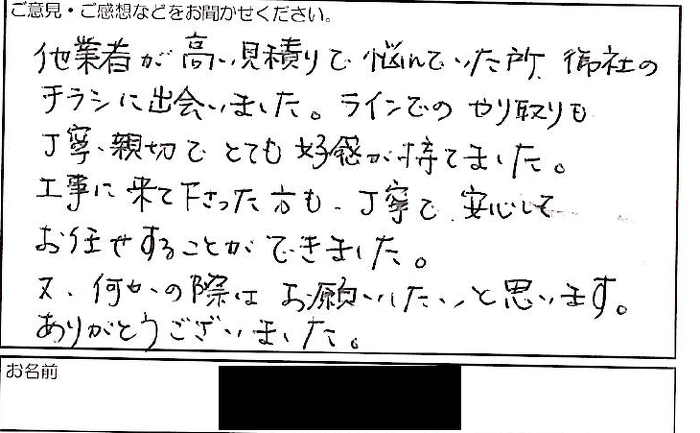 ご意見・ご感想などをお聞かせください。
他業者が高い見積りで悩んでいた所、御社の
チラシに出会いました。ラインでのやり取りも
丁寧、親切でとても好感が持てました。
工事に来て下さった方も、丁寧で、安心して
お任せすることができました。
又、何かの際はお願いしたいと思います。
ありがとうございました。
お名前